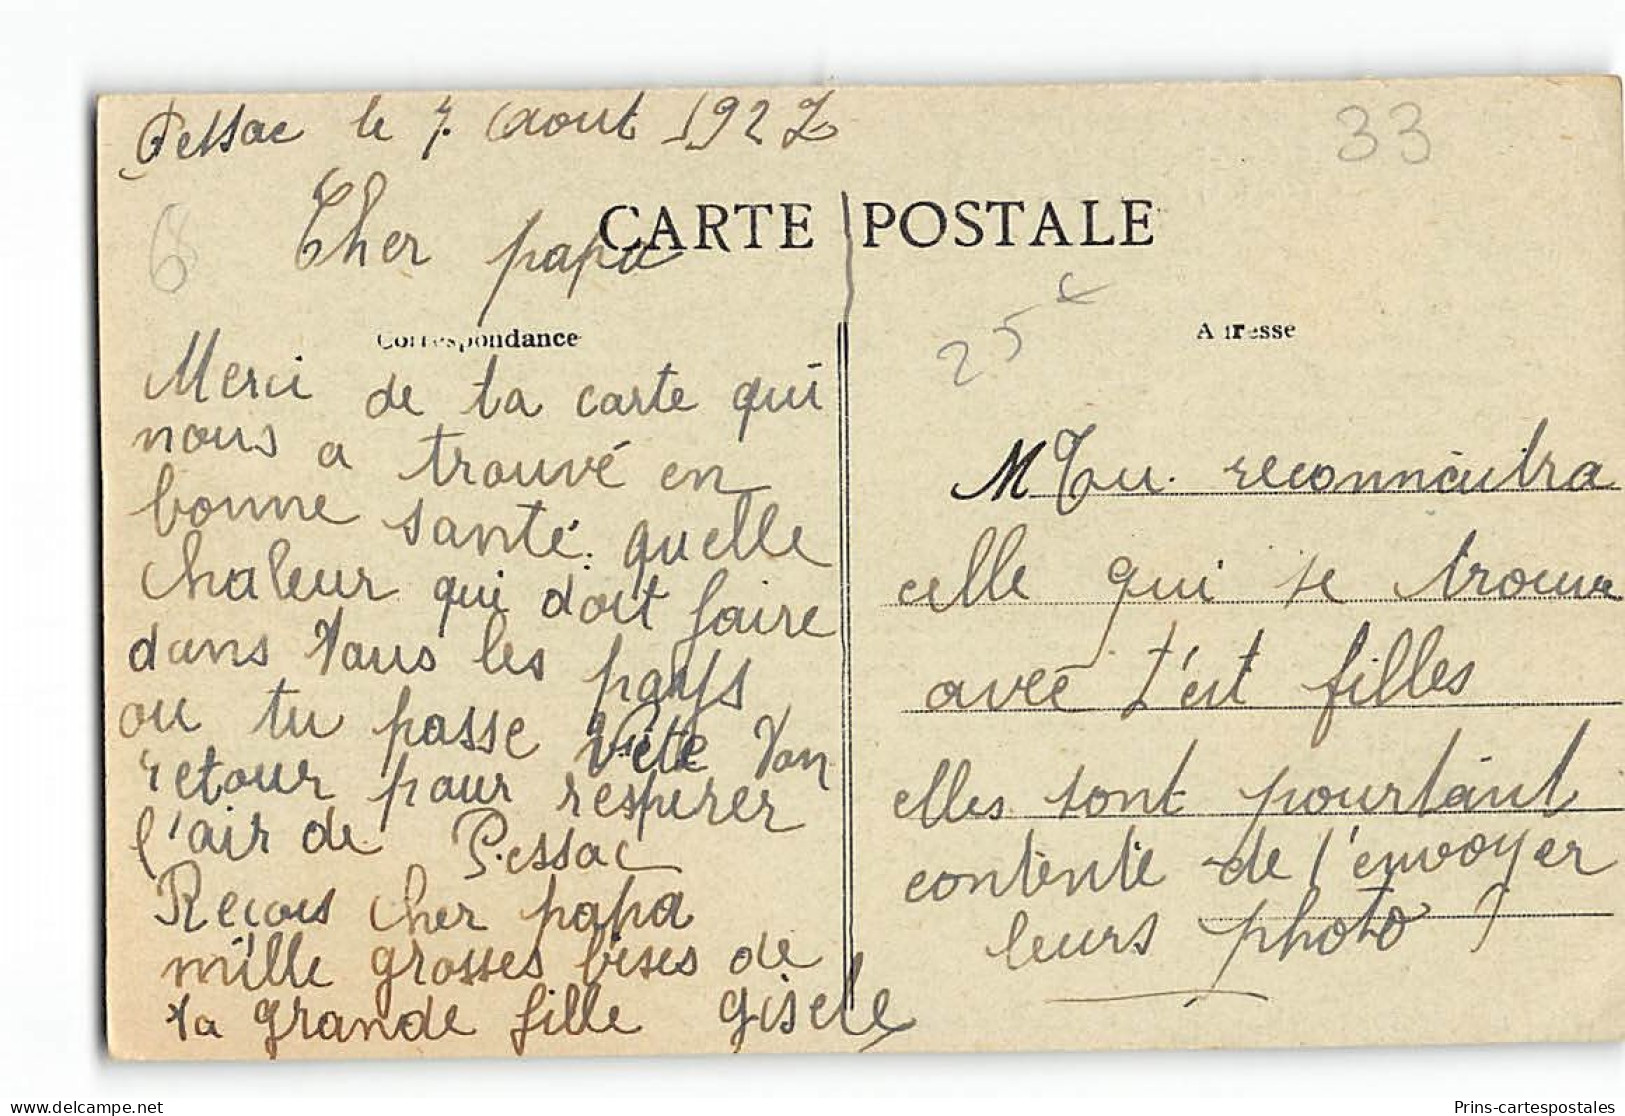 Pessac le 7. Aout 1927
33
6
Cher papa
CARTE POSTALE
25
Correspondance
Adresse
Merci de ta carte qui
nous a trouvé en
bonne santé. quelle
chaleur qui doit faire
dans tous les pays
ou tu passe vite ton
retour pour respirer
l'air de Pessac
Recois cher papa
mille grosses bises de
ta grande fille Gisele
M Tu reconnaitra
celle qui se trouve
avec t'est filles
elles sont pourtant
contente de l'envoyer
leurs photo
Prins-cartespostales